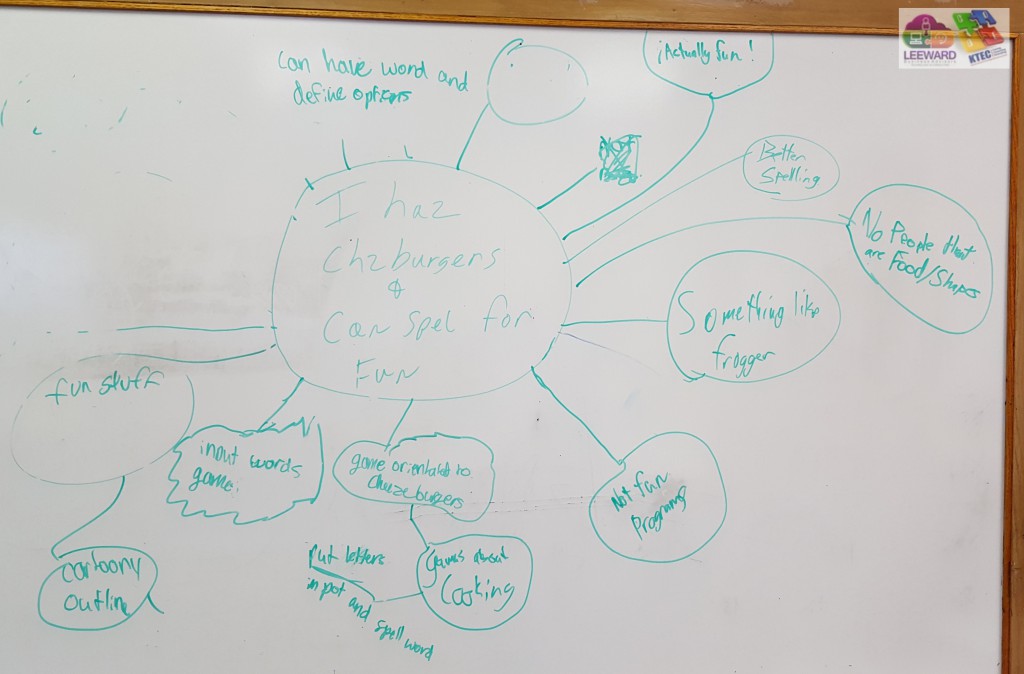 can have word and
define options
¡Actually fun!
Better
Spelling
No People that
are Food/Shapes
I haz
Chzburgers
&
Can spel for
Fun
Something like
frogger
fun stuff
input words
game.
game orientated to
cheezeburgers
Not fun
Programs
cartoony
outline
Games about
Cooking
Put letters
in pot and
spell word
LEEWARD
KTEC